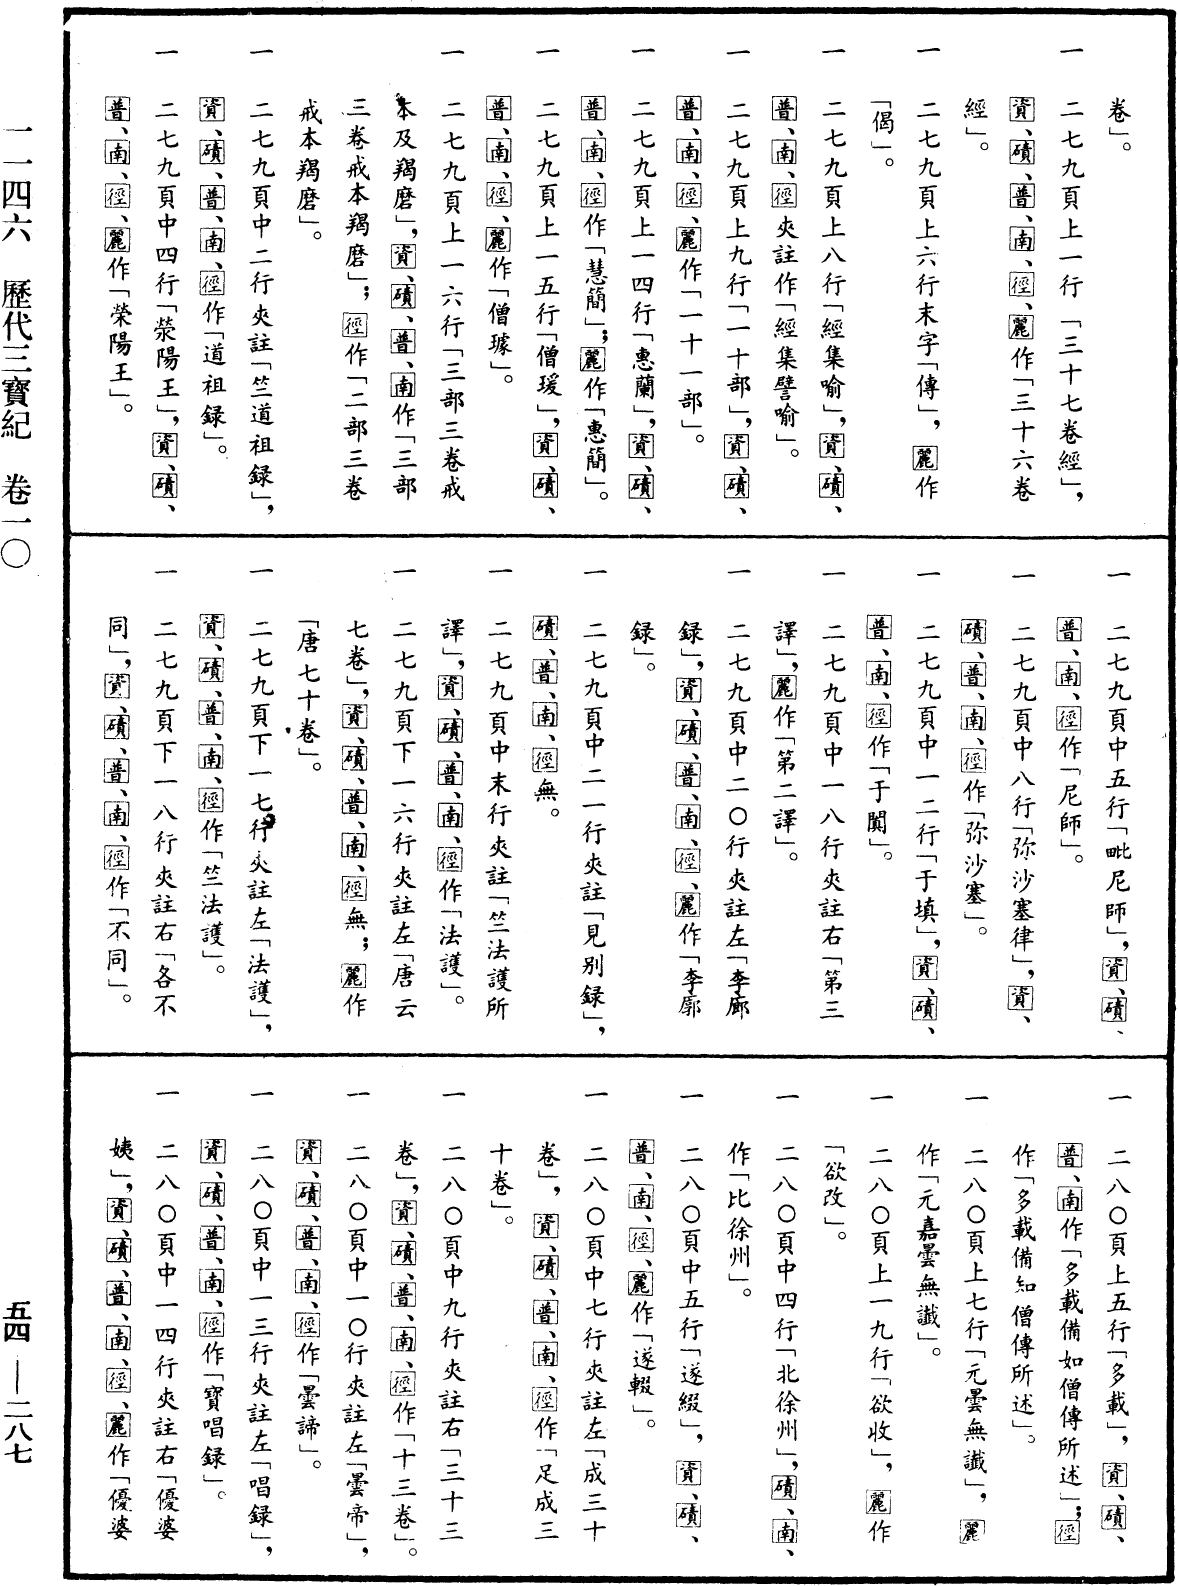 卷」。
一　二七九頁上一行「三十七卷經」，
資、磧、普、南、徑、麗作「三十六卷
經」。
一　二七九頁上六行末字「傳」，麗作
「偈」。
一　二七九頁上八行「經集喻」，資、磧、
普、南、徑夾註作「經集譬喻」。
一　二七九頁上九行「一十部」，資、磧、
普、南、徑、麗作「一十一部」。
一　二七九頁上一四行「惠蘭」，資、磧、
普、南、徑作「慧簡」；麗作「惠簡」。
一　二七九頁上一五行「僧瑗」，資、磧、
普、南、徑、麗作「僧璩」。
一　二七九頁上一六行「三部三卷戒
本及羯磨」，資、磧、普、南作「三部
三卷戒本羯磨」；徑作「二部三卷
戒本羯磨」。
一　二七九頁中二行夾註「竺道祖録」，
資、磧、普、南、徑作「道祖録」。
一　二七九頁中四行「滎陽王」，資、磧、
普、南、徑、麗作「榮陽王」。
一　二七九頁中五行「毗尼師」，資、磧、
普、南、徑作「尼師」。
一　二七九頁中八行「弥沙塞律」，資、
磧、普、南、徑作「弥沙塞」。
一　二七九頁中一二行「于填」，資、磧、
普、南、徑作「于闐」。
一　二七九頁中一八行夾註右「第三
譯」，麗作「第二譯」。
一　二七九頁中二〇行夾註左「李廊
録」，資、磧、普、南、徑、麗作「李廓
録」。
一　二七九頁中二一行夾註「見别録」，
磧、普、南、徑無。
一　二七九頁中末行夾註「竺法護所
譯」，資、磧、普、南、徑作「法護」。
一　二七九頁下一六行夾註左「唐云
七卷」，資、磧、普、南、徑無；麗作
「唐七十卷」。
一　二七九頁下一七行夾註左「法護」，
資、磧、普、南、徑作「竺法護」。
一　二七九頁下一八行夾註右「各不
同」，資、磧、普、南、徑作「不同」。
一　二八〇頁上五行「多載」，資、磧、
普、南作「多載備如僧傳所述」；徑
作「多載備知僧傳所述」。
一　二八〇頁上七行「元曇無讖」，麗
作「元嘉曇無讖」。
一　二八〇頁上一九行「欲收」，麗作
「欲改」。
一　二八〇頁中四行「北徐州」，磧、南、
作「比徐州」。
一　二八〇頁中五行「遂綴」，資、磧、
普、南、徑、麗作「遂輟」。
一　二八〇頁中七行夾註左「成三十
卷」，資、磧、普、南、徑作「足成三
十卷」。
一　二八〇頁中九行夾註右「三十三
卷」，資、磧、普、南、徑作「十三卷」。
一　二八〇頁中一〇行夾註左「曇帝」，
資、磧、普、南、徑作「曇諦」。
一　二八〇頁中一三行夾註左「唱録」，
資、磧、普、南、徑作「寶唱録」。
一　二八〇頁中一四行夾註右「優婆
姨」，資、磧、普、南、徑、麗作「優婆
一一四六　歷代三寶紀　卷一〇
五四—二八七